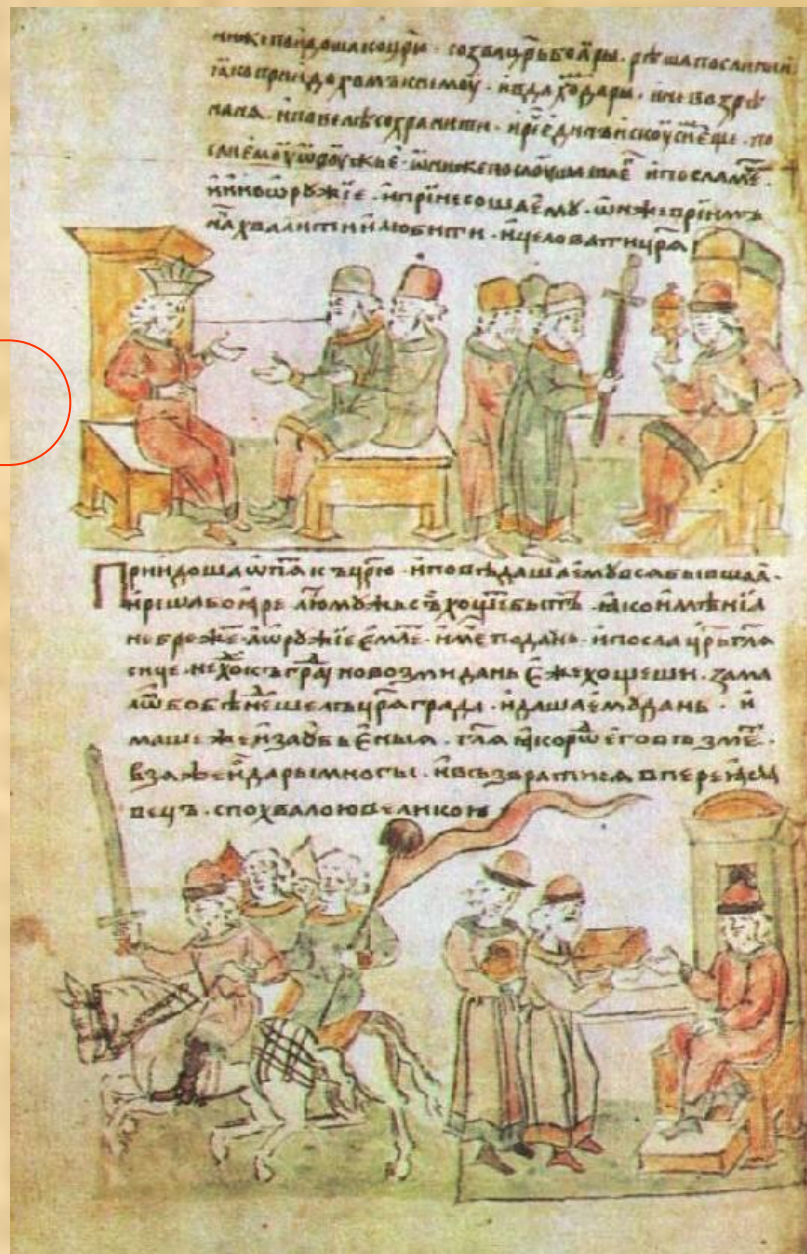 ониже поидоша коцр҃ю · созва цр҃ь боѧры · рѣша посланїи
ꙗко придохомъ к немоу · и вда хо҇ дары · и не возрѣ
на нѧ · и повелѣ сохранити · и рече единъ искоуси еще · по
сли ємоу ѿроужьє · ѡниже послоушаша є҇ и послаша
ѿроужїє · и принесоша ємоу · ѡнже прїимъ
нача хвалити и любити · и целовати црѧ
Приидоша ѡпѧ к цр҃ю · и поведаша ємоу всѧ бывшаѧ ·
и рѣша боѧре лю мужь съ хощє быть · ꙗко имѣнїѧ
небреже · а ѿружїє ємле · име подань · и посла цр҃ь гл҃ѧ
сице · не хо къ гра҇ но возми дань єже хощеши · зама
ло бо бѣ не шелъ црѧграда · и даша ємоу дань · и
маше же и за оубьєныѧ · гл҃ѧ ꙗко рѡ єго възмє ·
взѧ же и дары многы · и възвратисѧ в переꙗсла
вець · с похвалою великою